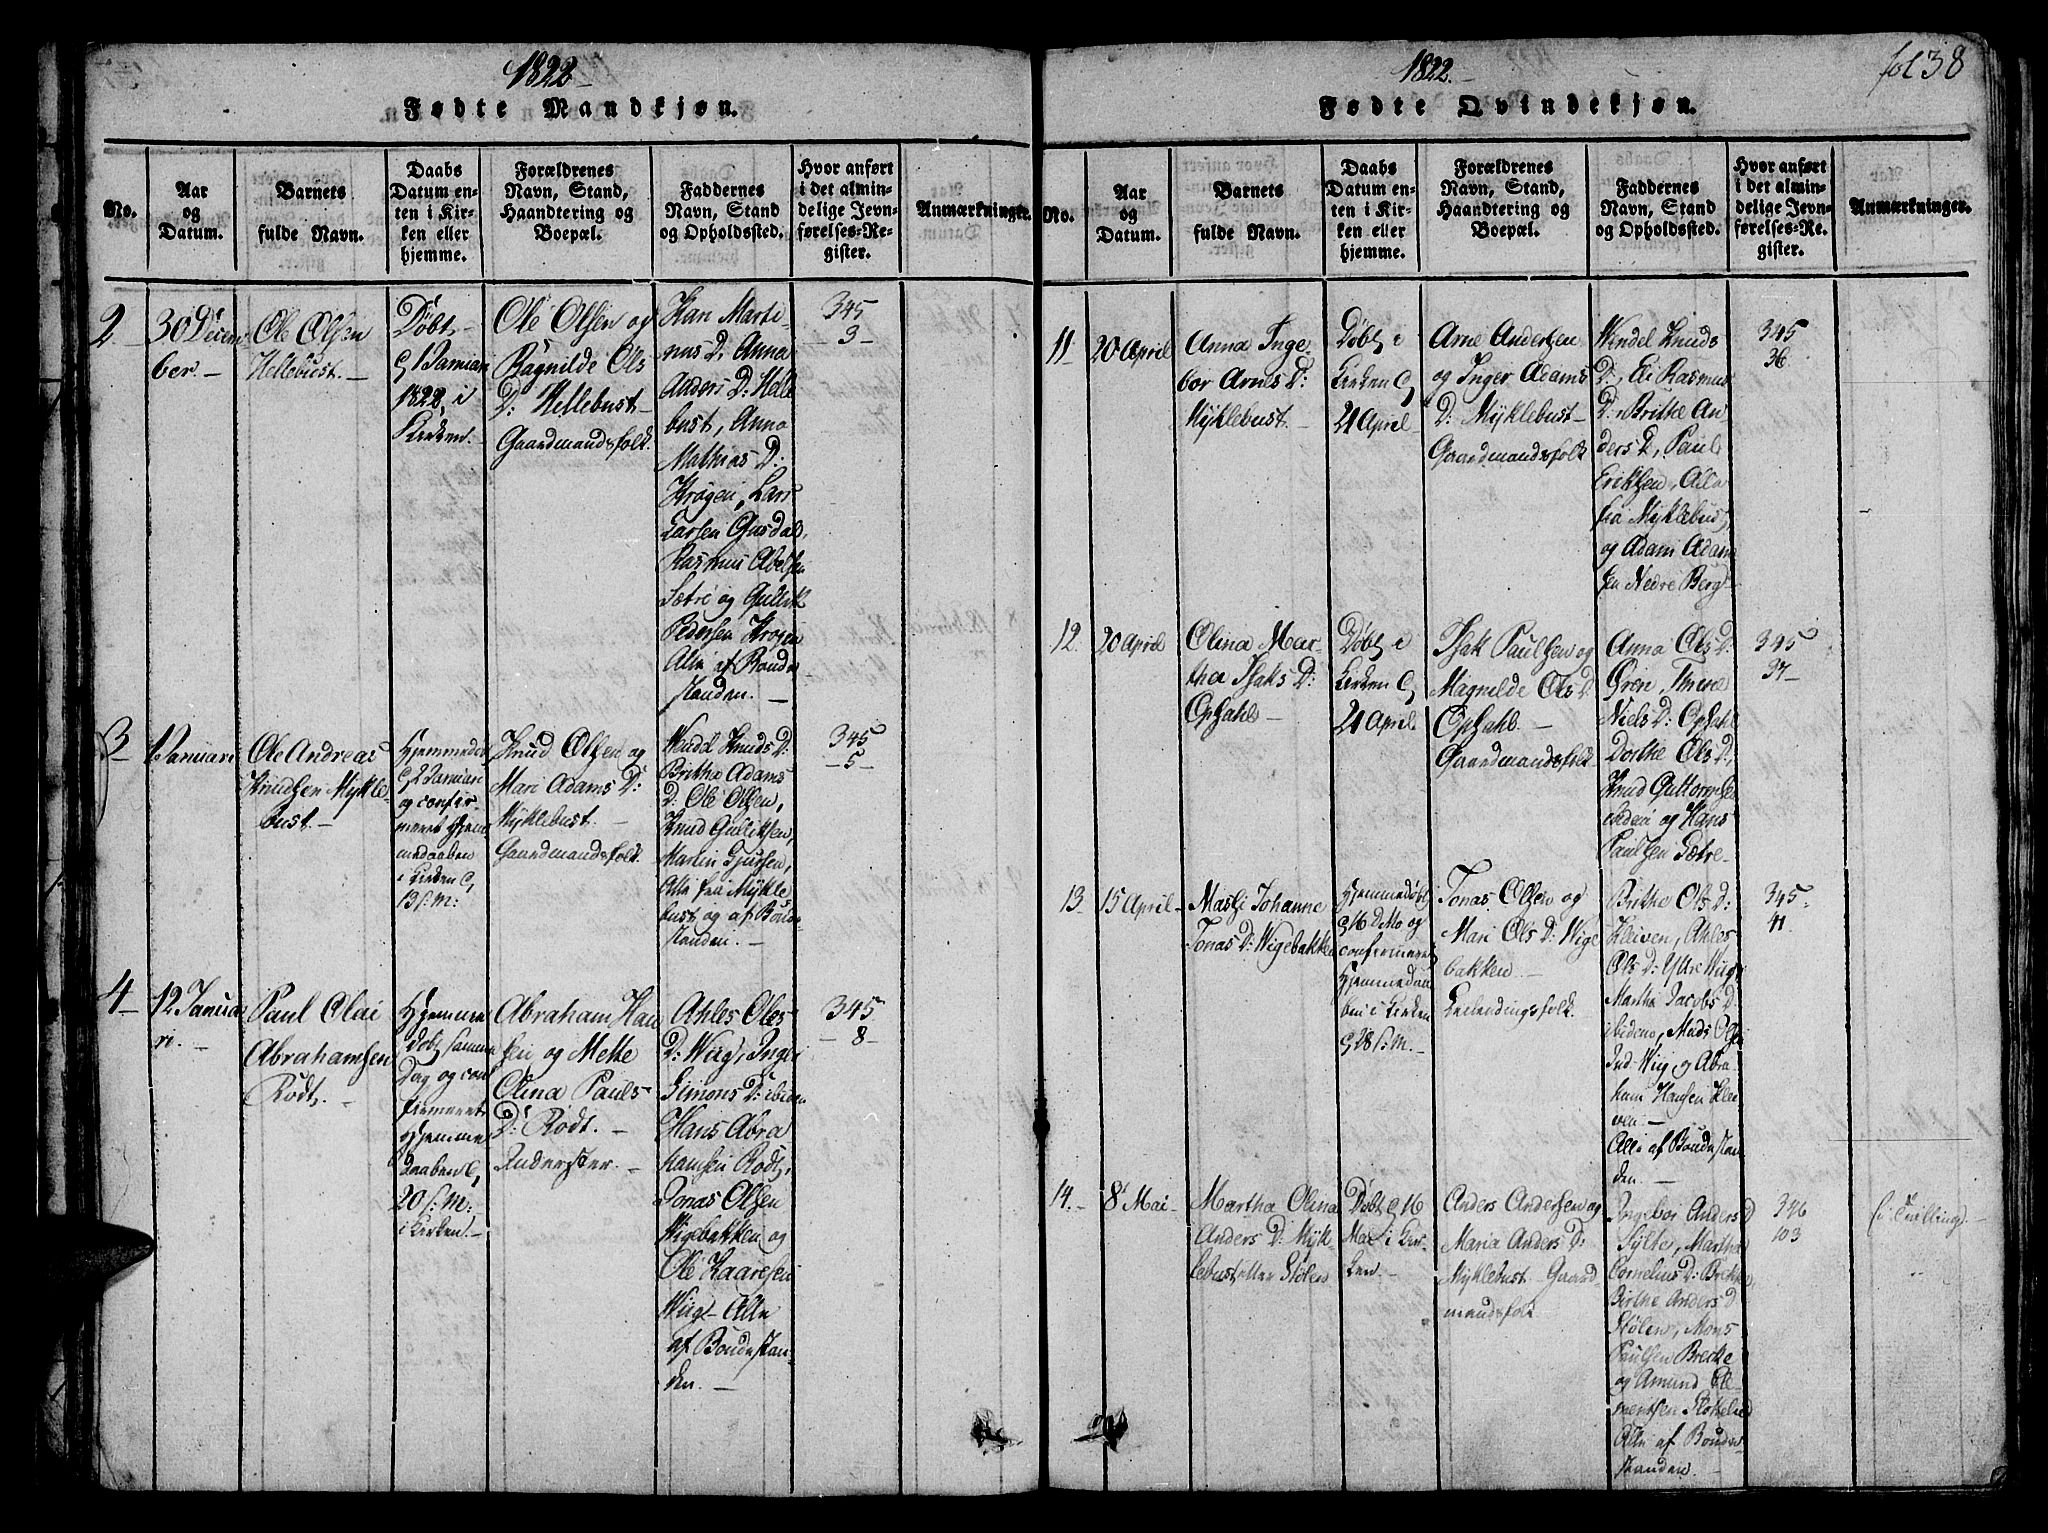 1822
Fødte Mandkjøn.
No.
Aar
og
Datum.
Barnets
fulde Navn.
Daabs
Datum en-
ten i Kir-
ken eller
hjemme.
Forældrenes
Navn, Stand,
Haandtering og
Boepæl.
Faddernes
Navn, Stand
og Opholdssted.
Hvor anført
i det almin-
delige Jevn-
førelses-Re-
gister.
Anmærkninger.
2
30 Decem
ber.
Ole Olsen
Hellebust.
Døbt
1822, i
Kirken.
Ole Olsen og
Ragnilde Ols
D: Hellebust
Gaardmandsfolk
Marti-
nus D: Anna
Anders D: Helle
bust, Anna
Mathias D:
Krøgen, Lars
Larsen
Rasmus Abelsen
Sætre og Gullik
Pedersen Krøgen
Alle af Bonde
standen.
345
3
3
1 Januari
Ole Andreas
Knudsen Mykle-
bust
Hjemmedøbt
2 Januari
og confir-
meret Hjem-
medaaben
i Kirken
13 s: M:
Knud Olsen og
Mari Adams D:
Myklebust
Gaardmandsfolk
Knuds D:
Britha Adams
D: Ole Olsen,
Knud Gulliksen,
Martin Gjursen,
Alle fra Mykle
bust og af Bonde
standen.
345
5
4
12 Januar
ri.
Paul Olai
Abrahamsen
Rødt
Hjemme
døbt samme
Dag og con
firmeret
Hjemme
daaben
20 s: M:
i Kirken.
Abraham Han
sen og Mette
Olina Pauls
D: Rødt.
Ahles Oles
D: Wiig, Inger
Simons D: ibiden
Hans Abra
hamsen Rødt,
Jonas Olsen
Wigebakken og
Ole Kaaresen
Wiig Alle
af Bondestan-
den.
345
8
fol 38
1822.
Fødte Qvindekjøn.
No.
Aar
og
Datum.
Barnets
fulde Navn.
Daabs
Datum en-
ten i Kir-
ken eller
hjemme.
Forældrenes
Navn, Stand,
Haandtering og
Boepæl.
Faddernes
Navn, Stand
og Opholdssted.
Hvor anført
i det almin-
delige Jevn-
førelses-Re-
gister.
Anmærkninger.
11
20 April
Anna Inge-
bor Arnes D:
Myklebust.
Døbt i
Kirken
21 April
Arne Andersen
og Inger Adams
D: Myklebust
Gaardmandsfolk
Knuds
D:, Eli Rasmus
D:, Britte An
ders D, Paul
Eriksen, Alle
fra Myklebust
og Adam Adam
sen Nedre Berg
345
36
12.
20 April
Olina Mar-
tha Isaks D:
Opsahl
Døbt i
Kirken
21 April
Isak Paulsen og
Magnilde Ols D:
Opsahl.
Gaardmandsfolk
Anna Ols D:
Niels D: Opsahl
Dorthe Ols D:,
Knud Guttormsen
ibiden og Hans
Paulsen Sætre
345
37
13
15 April
Johanne
Jonas D: Wigebakken
Hjemmedøbt
16 d: Mo og
confirmeret
Hjemmedaa
ben i Kirken
28 s: M.
Jonas Olsen og
Mari Ols D: Wige
bakken.
Leilendingsfolk.
Brithe Ols D:
Kleiven, Ahles
Ols D: Ytre Wiig,
Martha Jacobs D
ibidem, Mads Olsen
Ind Wiig, og Abra
ham Hansen Klei
ven
Alle af Bondestan
den.
345
41
14.
8 Mai
Martha Olina
Anders D: Myk-
lebust eller Stølen
Døbt 16
Mai i Kir-
ken
Anders Andersen og
Maria Anders D:
Myklebust Gaard
mandsfolk
Ingebor Anders D
Sylte, Martha
Cornelius D: Brekke,
Birthe Anders D
Stølen, Mons
Paulsen Brekke
og Amund Cle-
mentsen
Alle af Bonde
standen.
346
103
(: Tvilling:)